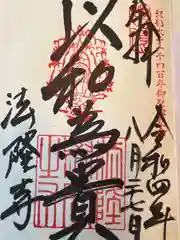 奉拝
令和四年
八月二七日
以和為貴
法隆寺